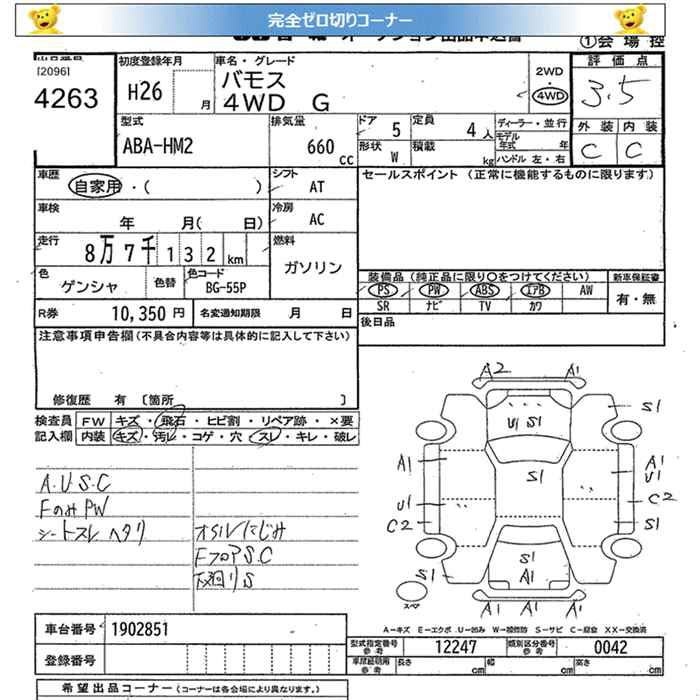 完全ゼロ切りコーナー
①会場控
[2096]
4263
初度登録年月
H26
月
車名・グレード
バモス
4WD G
2WD
・
4WD
評価点
3.5
外装 内装
C C
型式
ABA-HM2
排気量
660
cc
ドア 5 定員 4人
形状 W 積載 kg
ディーラー・並行
モデル年式 年
ハンドル 左・右
車歴
自家用・( )
シフト AT
セールスポイント (正常に機能するものに限ります)
車検
年 月( 日)
冷房 AC
走行
8万7千132km
燃料
ガソリン
色
ゲンシャ
色替
色コード
BG-55P
装備品(純正品に限り〇をつけてください)
新車保証書
PS PW ABS エアB AW
有・無
SR ナビ TV カワ
R券 10,350 円
名変通知期限 月 日
後日品
注意事項申告欄(不具合内容等は具体的に記入して下さい)
修復歴 有 〔箇所 〕
検査員 FW キズ・飛石・ヒビ割・リペア跡・×要
記入欄 内装 キズ・汚レ・コゲ・穴・スレ・キレ・破レ
A.U.S.C
FのみPW
シートスレ ヘタリ
オイルにじみ
FフロアS.C
下廻りS
A2 A1
U1 S1
S1
A1
S1
A1
U1
U1
C2
C2
S1
S1
S1
A1
スペア
A1 A1 A1
A－キズ E－エクボ U－凹み W－補修跡 S－サビ C－腐食 XX－交換済
車台番号 1902851
登録番号
型式指定番号
参考
12247
類別区分番号
参考
0042
車庫証明用
参考
長さ cm 幅 cm 高さ cm
希望出品コーナー(コーナーは各会場により異なります。)